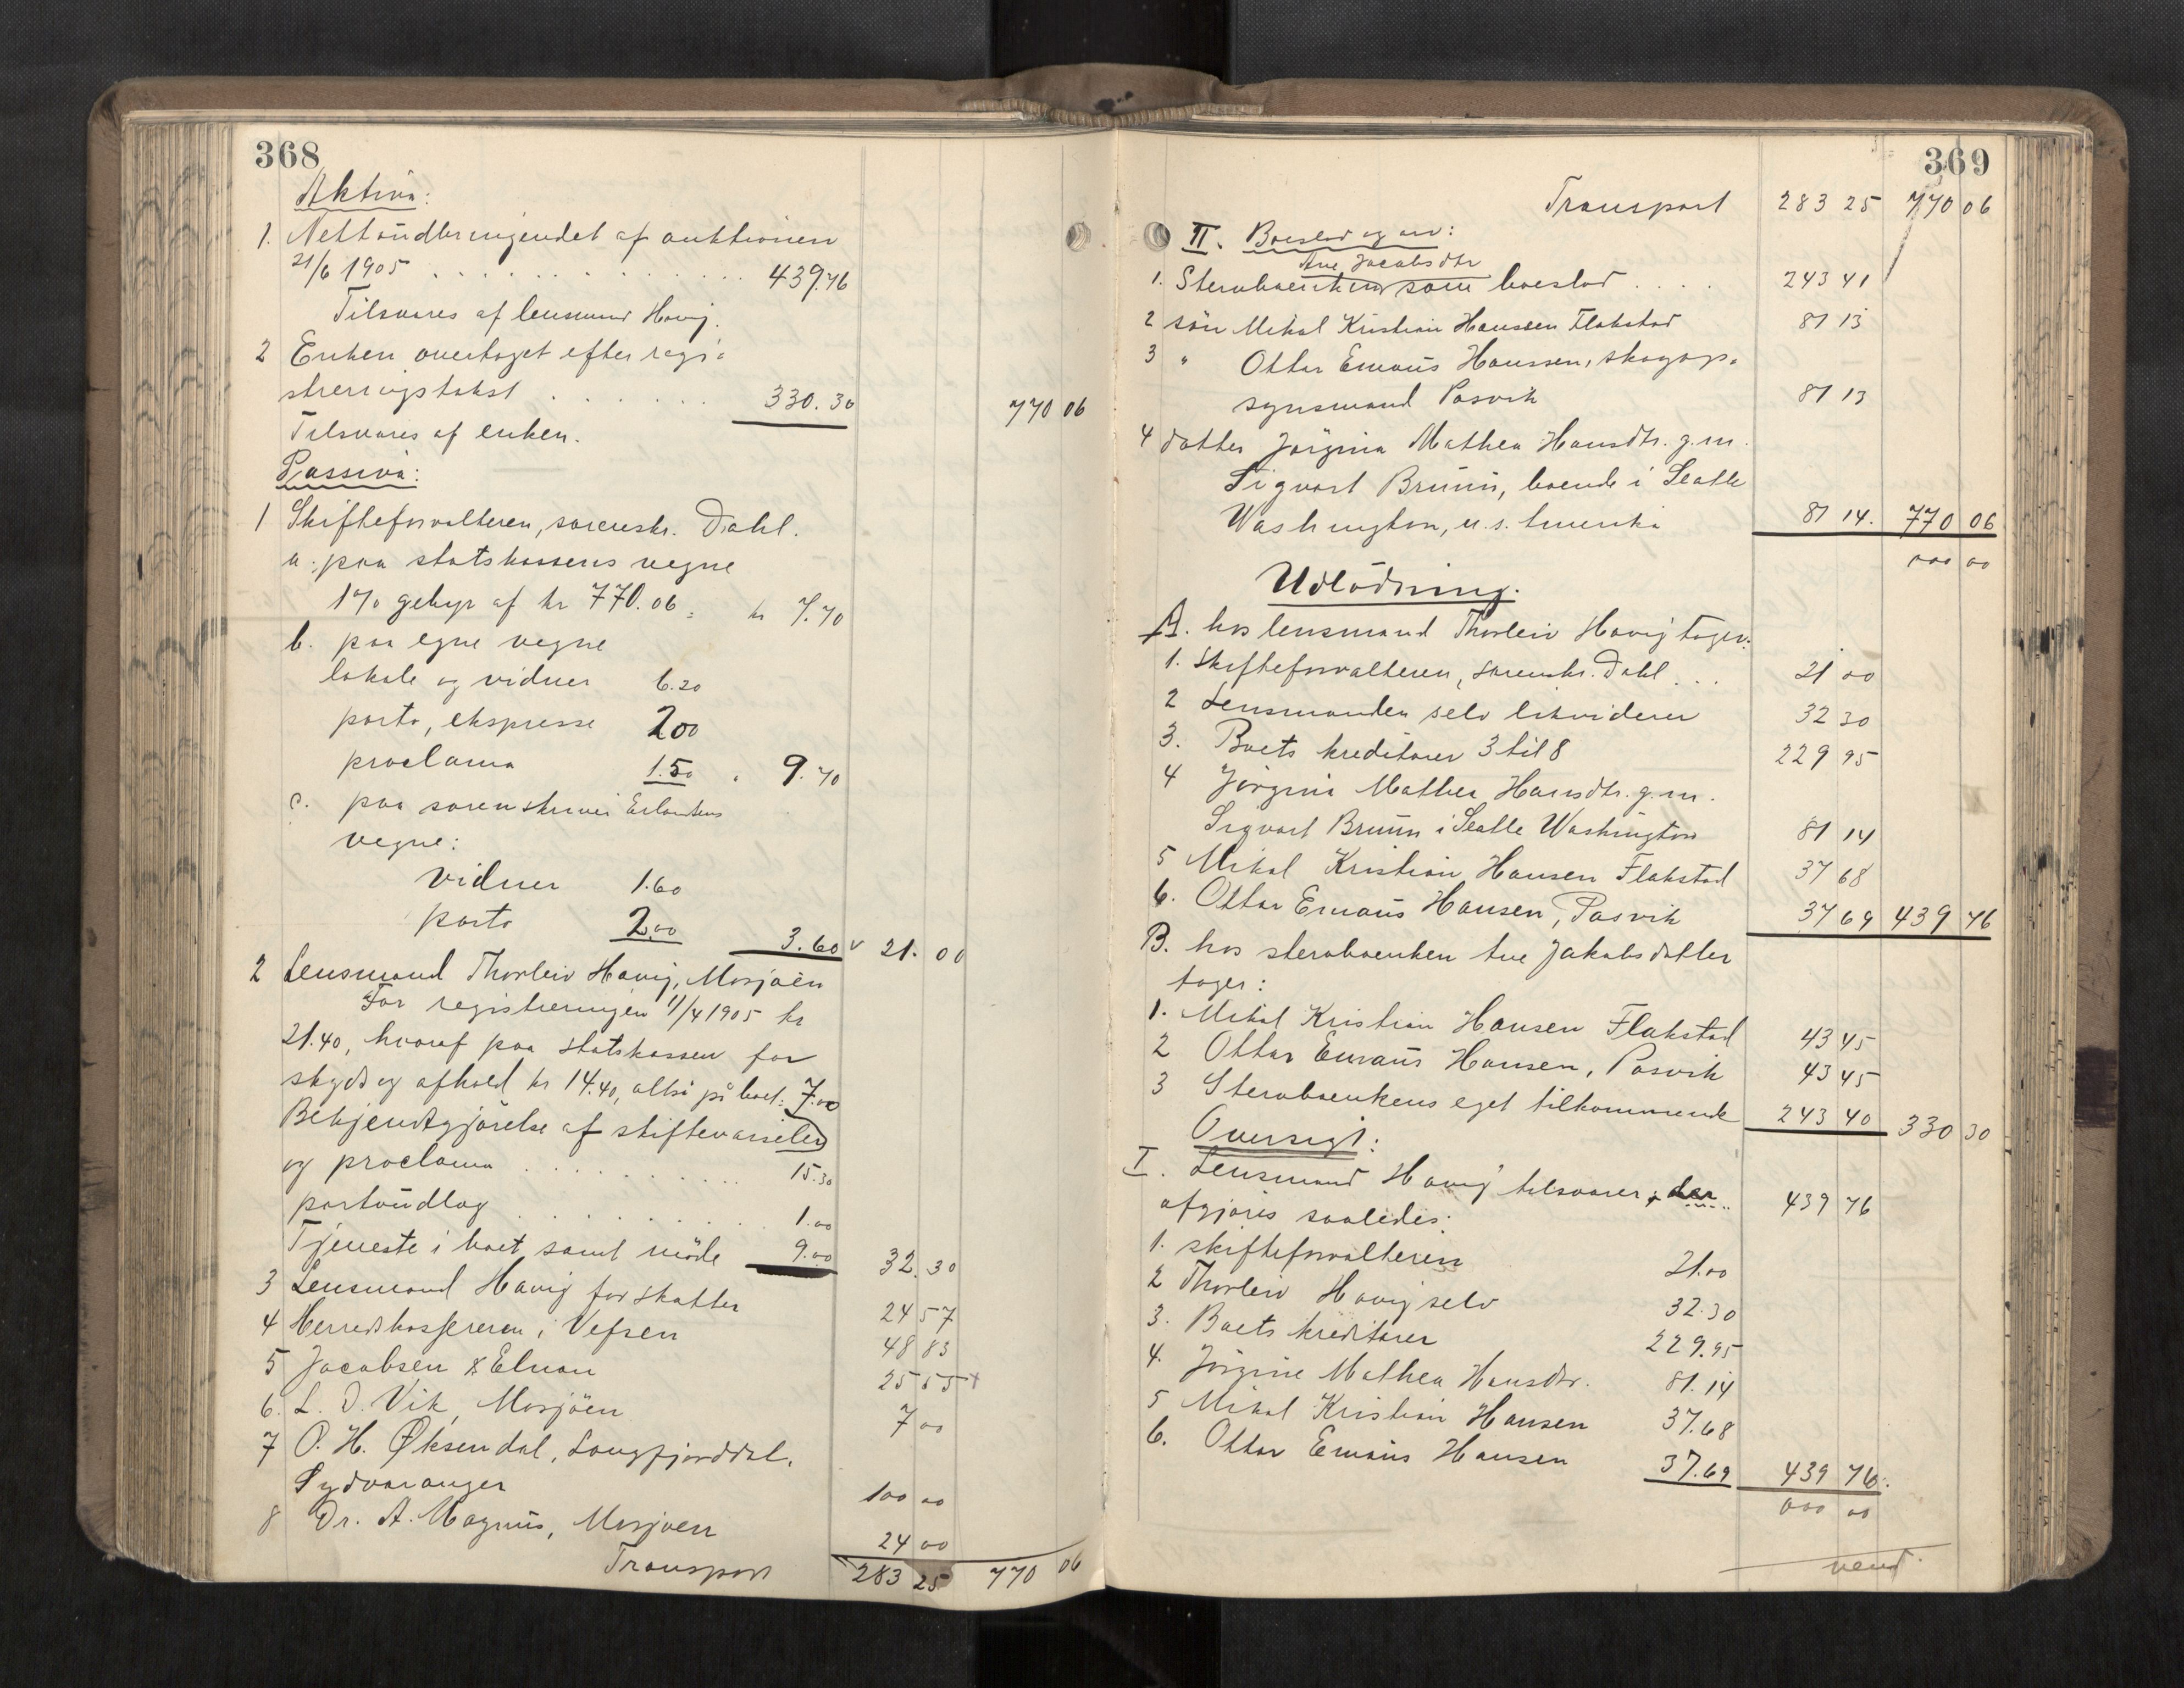 368
Aktiva:
1. Nettoudbringendet af auktionen
21/6 1905 . . . . . . . . . . . . . 439.76
Tilsvares af lensmand Havig.
2 Enken overtaget efter regi-
streringstakst . . . . . . . 330.30 770 06
Tilsvares af enken.
Passiva:
1 Skifteforvalteren, sorenskr. Dahl.
a. paa statskassens vegne
1% gebyr af kr 770.06 = kr 7.70
b. paa egne vegne
lokale og vidner 6.20
porto, ekspresse 2.00
proclama 1.50 " 9.70
c. paa sorenskriver Erlandsens
vegne:
vidner 1.60
porto 2.00 3.60 21.00
2 Lensmand Thorleiv Havig, Mosjøen
For registreringen 11/4 1905 kr
21.40, hvoraf paa statskassen for
skyds og ophold kr 14.40, altså på boet: 7.00
Bekjendtgjörelse af skiftevarselen
og proclama . . . . . . . . . 15.30
portoudlag . . . . . . . . . . . 1.00
Tjeneste i boet samt möde 9.00 32.30
3 Lensmand Havig for skatter 24 57
4 Herredskassereren i Vefsen 48 83
5 Jacobsen & Elnan 25 55
6. L. D. Vik, Mosjöen 7 00
7 O. H. Øksendal, Langfjorddal,
Sydvaranger 100 00
8 Dr. A. Magnus, Mosjøen 24 00
Transport 283 25 770 06
369
Transport 283 25 770 06
II. Boeslod og arv:
Ane Jacobsdtr
1. Stervboenken som boeslod . . . . 243 41
2 sön Mikal Kristian Hanssen Flakstad 81 13
3 " Ottar Emaus Hanssen, skogop-
synsmand Pasvik 81 13
4 datter Jörgina Mathea Hansdtr. g.m.
Sigvart Bruun, boende i Seatle
Washington, u.s. Amerika 81 14. 770 06
000 00
Udlödning.
A. hos lensmand Thorleiv Havig tager:
1. Skifteforvalteren, sorenskr. Dahl . . . 21 00
2 Lensmanden selv likviderer 32 30
3. Boets kreditorer 3 til 8 229 95
4 Jörgina Mathea Hansdtr. g.m.
Sigvart Bruun i Seatle Washington 81 14
5 Mikal Kristian Hansen Flakstad 37 68
6. Ottar Emaus Hansen, Pasvik 37 69 439 76
B. hos stervboenken Ane Jakobsdatter
tager:
1. Mikal Kristian Hansen Flakstad 43 45
2 Ottar Emaus Hansen, Pasvik 43 45
3 Stervboenkens eget tilkommende 243 40 330 30
Oversigt:
I. Lensmand Havig tilsvarer, der 439 76
afgjøres saaledes:
1. skifteforvalteren 21.00
2 Thorleiv Havig selv 32.30
3. Boets kreditorer 229.95
4. Jörgine Mathea Hansdtr. 81.14
5 Mikal Kristian Hansen 37.68
6. Ottar Emaus Hansen 37.69 439 76.
000 00
vend.